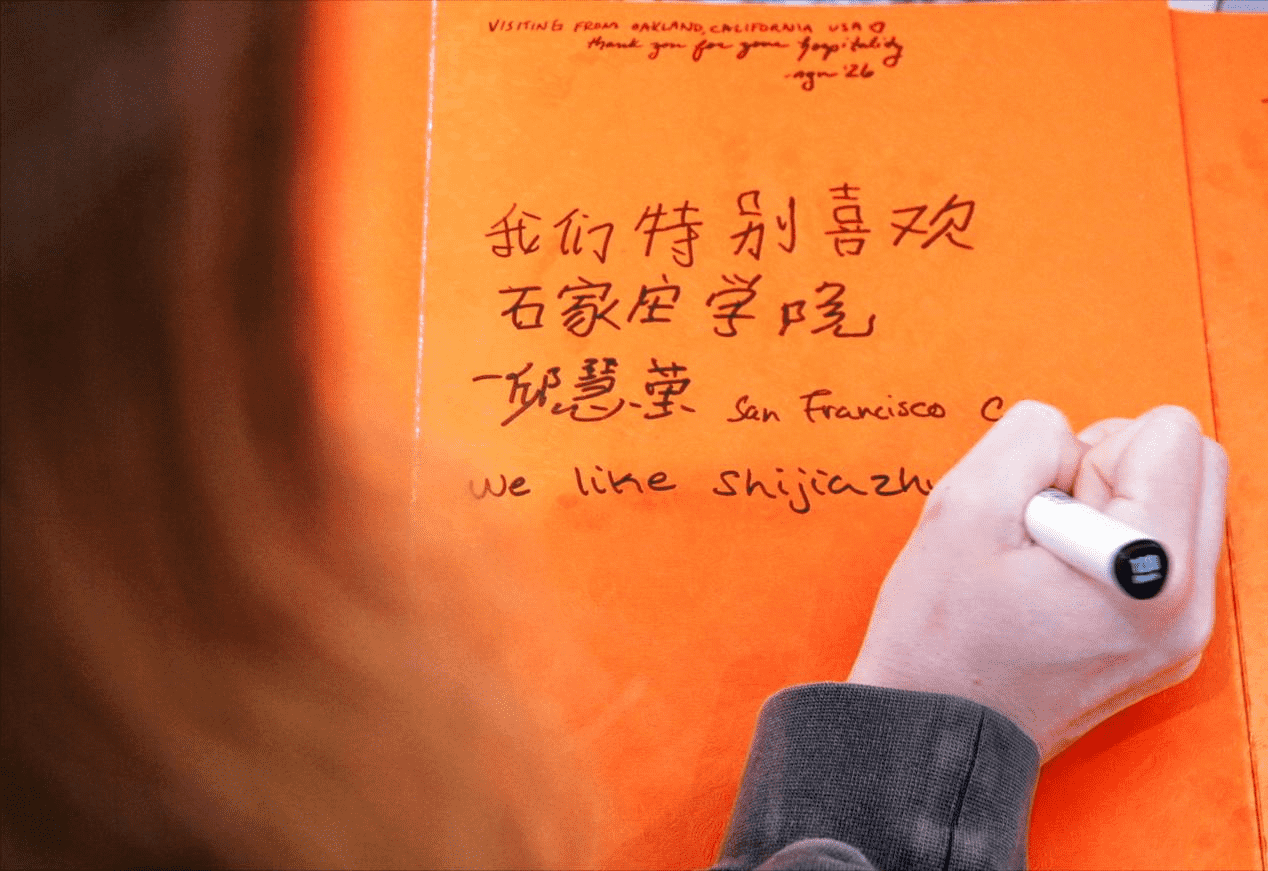 VISITING FROM OAKLAND, CALIFORNIA USA ♡
thank you for your hospitality
'26
我们特别喜欢
石家庄学院
-邱慧莹 San Francisco
We like shijiazh